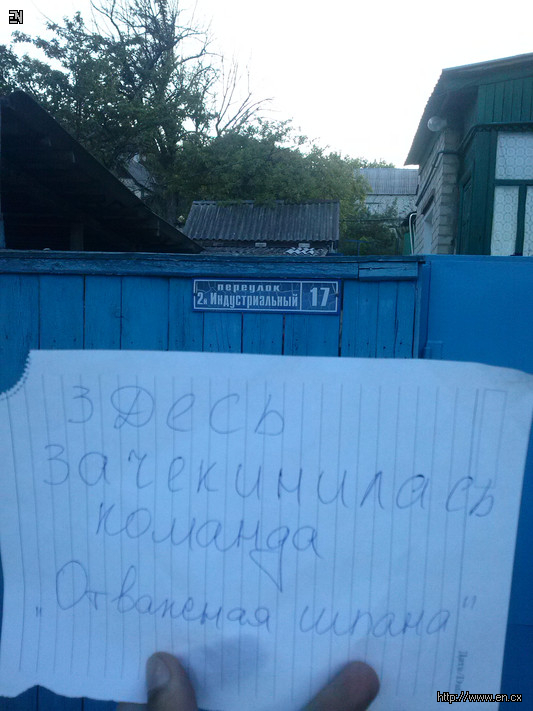 EN
переулок
2й Индустриальный 17
здесь
зачекинилась
команда
"Отважная шпана"
http://www.en.cx